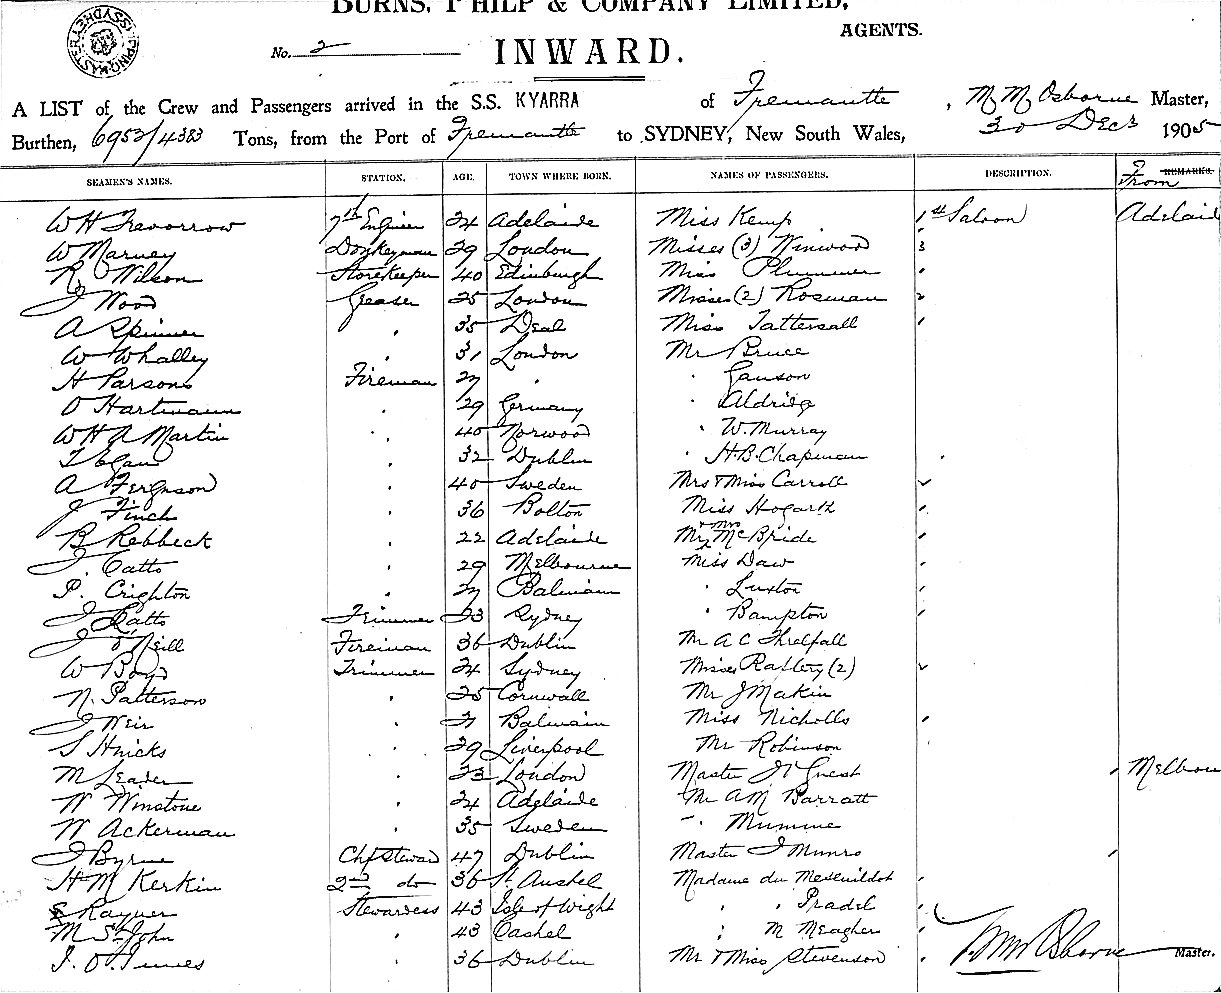 BURNS, PHILP & COMPANY LIMITED,
AGENTS.
No. 2
INWARD.
A LIST of the Crew and Passengers arrived in the S.S. KYARRA of Fremantle, Osborne Master,
Burthen, 6953/4383 Tons, from the Port of Fremantle to SYDNEY, New South Wales, 30 Decr 1905
SEAMEN'S NAMES. STATION. AGE. TOWN WHERE BORN. NAMES OF PASSENGERS. DESCRIPTION. REMARKS. From
W H Trevorrow 7th Engineer 24 Adelaide Miss Kemp 1 1st Saloon Adelaid
W Marney Donkeyman 29 London Misses (3) Winwood 3
R Wilson Storekeeper 40 Edinburgh Miss Plummer
J Wood Greaser 25 London Misses (2) Rosman 2
A Spinner " 35 Deal Miss Tattersall
W Whalley " 31 London Mr Bruce
H Parsons Fireman 27 " " Ganson
O Hartmann " 29 Germany " Aldridge
W H A Martin " 40 Norwood " W. Murray
T Egan " 32 Dublin " H.B. Chapman
A Ferguson " 40 Sweden Mrs & Miss Carroll
J Finch " 36 Bolton Miss Hogarth
B Rebbeck " 22 Adelaide Mr & Mrs McBride
J. Catto " 29 Melbourne Miss Daw
P. Crighton " 27 Balmain " Luxton
J Ratto Trimmer 23 Sydney " Bampton
J O'Neill Fireman 36 Dublin Mr A C Threlfall
W Boyd Trimmer 24 Sydney Misses Raftery (2)
N. Patterson " 25 Cornwall Mr J Makin
J Weir " 21 Balmain Miss Nicholls
S Hnicks " 29 Liverpool Mr Robinson
M Leader " 23 London Master Guest Melbou
W Winstone " 24 Adelaide Mr A M Barratt
W Ackerman " 35 Sweden " Mumme
J Byrne Chf Steward 47 Dublin Master J Munro
H M Kerkin 2nd do 36 St Austel Madame du Mesenildot
Rayner Stewardess 43 Isle of Wight " " Pradel
M St John " 43 Cashel " M Meagher
" 36 Dublin Mr & Miss Stevenson Osborne Master.